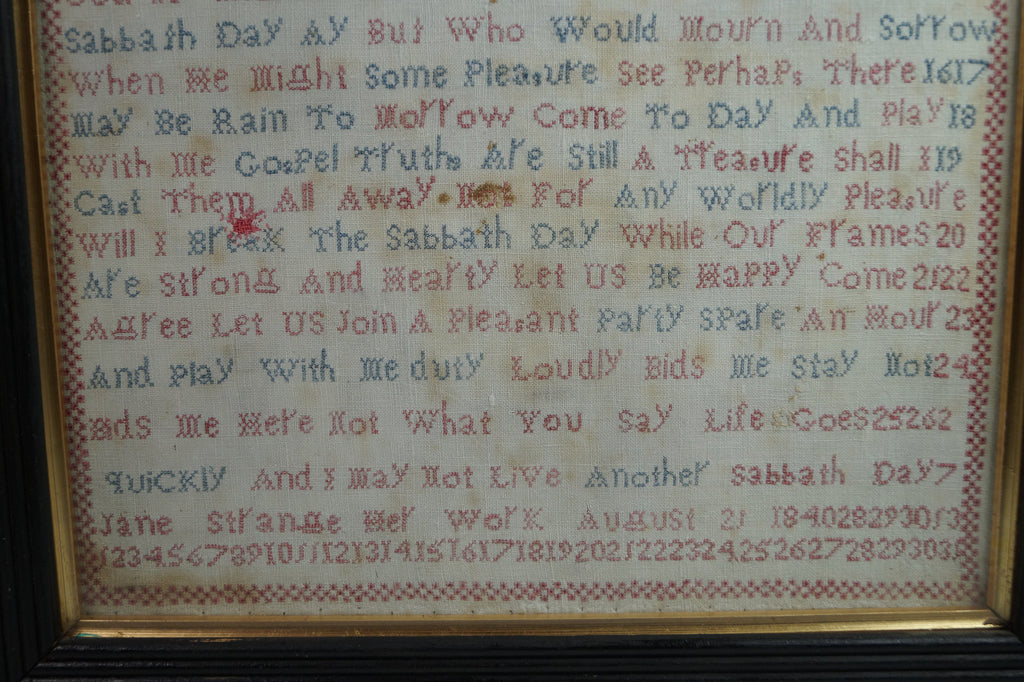 Sabbath Day Ay But Who Would Mourn And Sorrow
When He Might Some Pleasure See Perhaps There 1617
May Be Rain To Morrow Come To Day And Play 18
With Me Gospel Truths Are Still A Treasure Shall I 19
Cast Them All Away Not For Any Worldly Pleasure
Will I Break The Sabbath Day While Our Frames 20
Are Strong And Hearty Let US Be Happy Come 2122
Agree Let US Join A Pleasant Party Spare An Hour 23
And Play With Me duty Loudly Bids Me Stay Not 24
Bids Me Here Not What You Say Life Goes 25262
quickly And I May Not Live Another Sabbath Day 7
Jane Strange Her Work August 21 18402829303
12345678910111213141516171819202122232425262728293031